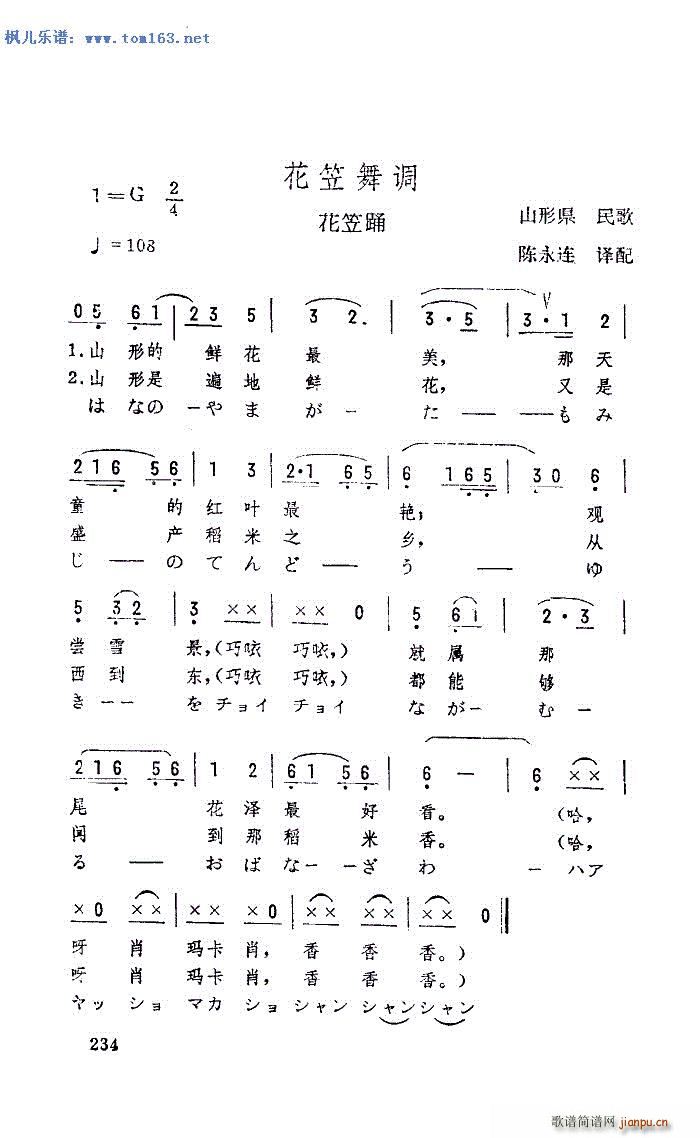 枫儿乐谱：www.tom163.net
花笠舞调
1=G 2/4
花笠踊
山形県 民歌
♩=108
陈永连 译配
0 5 6 1 | 2 3 5 | 3 2. | 3 · 5 | 3 · 1 2 |
1.山 形的 鲜 花 最 美， 那 天
2.山 形是 遍 地 鲜 花， 又 是
はなの ーやま が ー た ー ー もみ
2 1 6 5 6 | 1 3 | 2·1 6 5 | 6 1 6 5 | 3 0 6 |
童 的 红 叶 最 艳； 观
盛 产 稻 米 之 乡， 从
じ ー ー の て ん ど ー ー う ー ー ゆ
5 3 2 | 3 ×× | ×× 0 | 5 6 i | 2 · 3 |
尝 雪 景，(巧咳 巧咳，) 就 属 那
西 到 东，(巧咳 巧咳，) 都 能 够
き ー ー を チョイ チョイ なが ー む ー
2 1 6 5 6 | 1 2 | 6 1 5 6 | 6 — | 6 ×× |
尾 花 泽 最 好 看。 (哈，
闻 到 那 稻 米 香。 (哈，
る ー ー おばな ー ー ざ わ ー ハア
× 0 ×× | ×× ×× | ×× ×× | ×× 0 ‖
呀 肖 玛卡 肖， 香 香 香。)
呀 肖 玛卡 肖， 香 香 香。)
ヤッ ショ マカ ショ シャン シャンシャン
234
歌谱简谱网
jianpu.cn